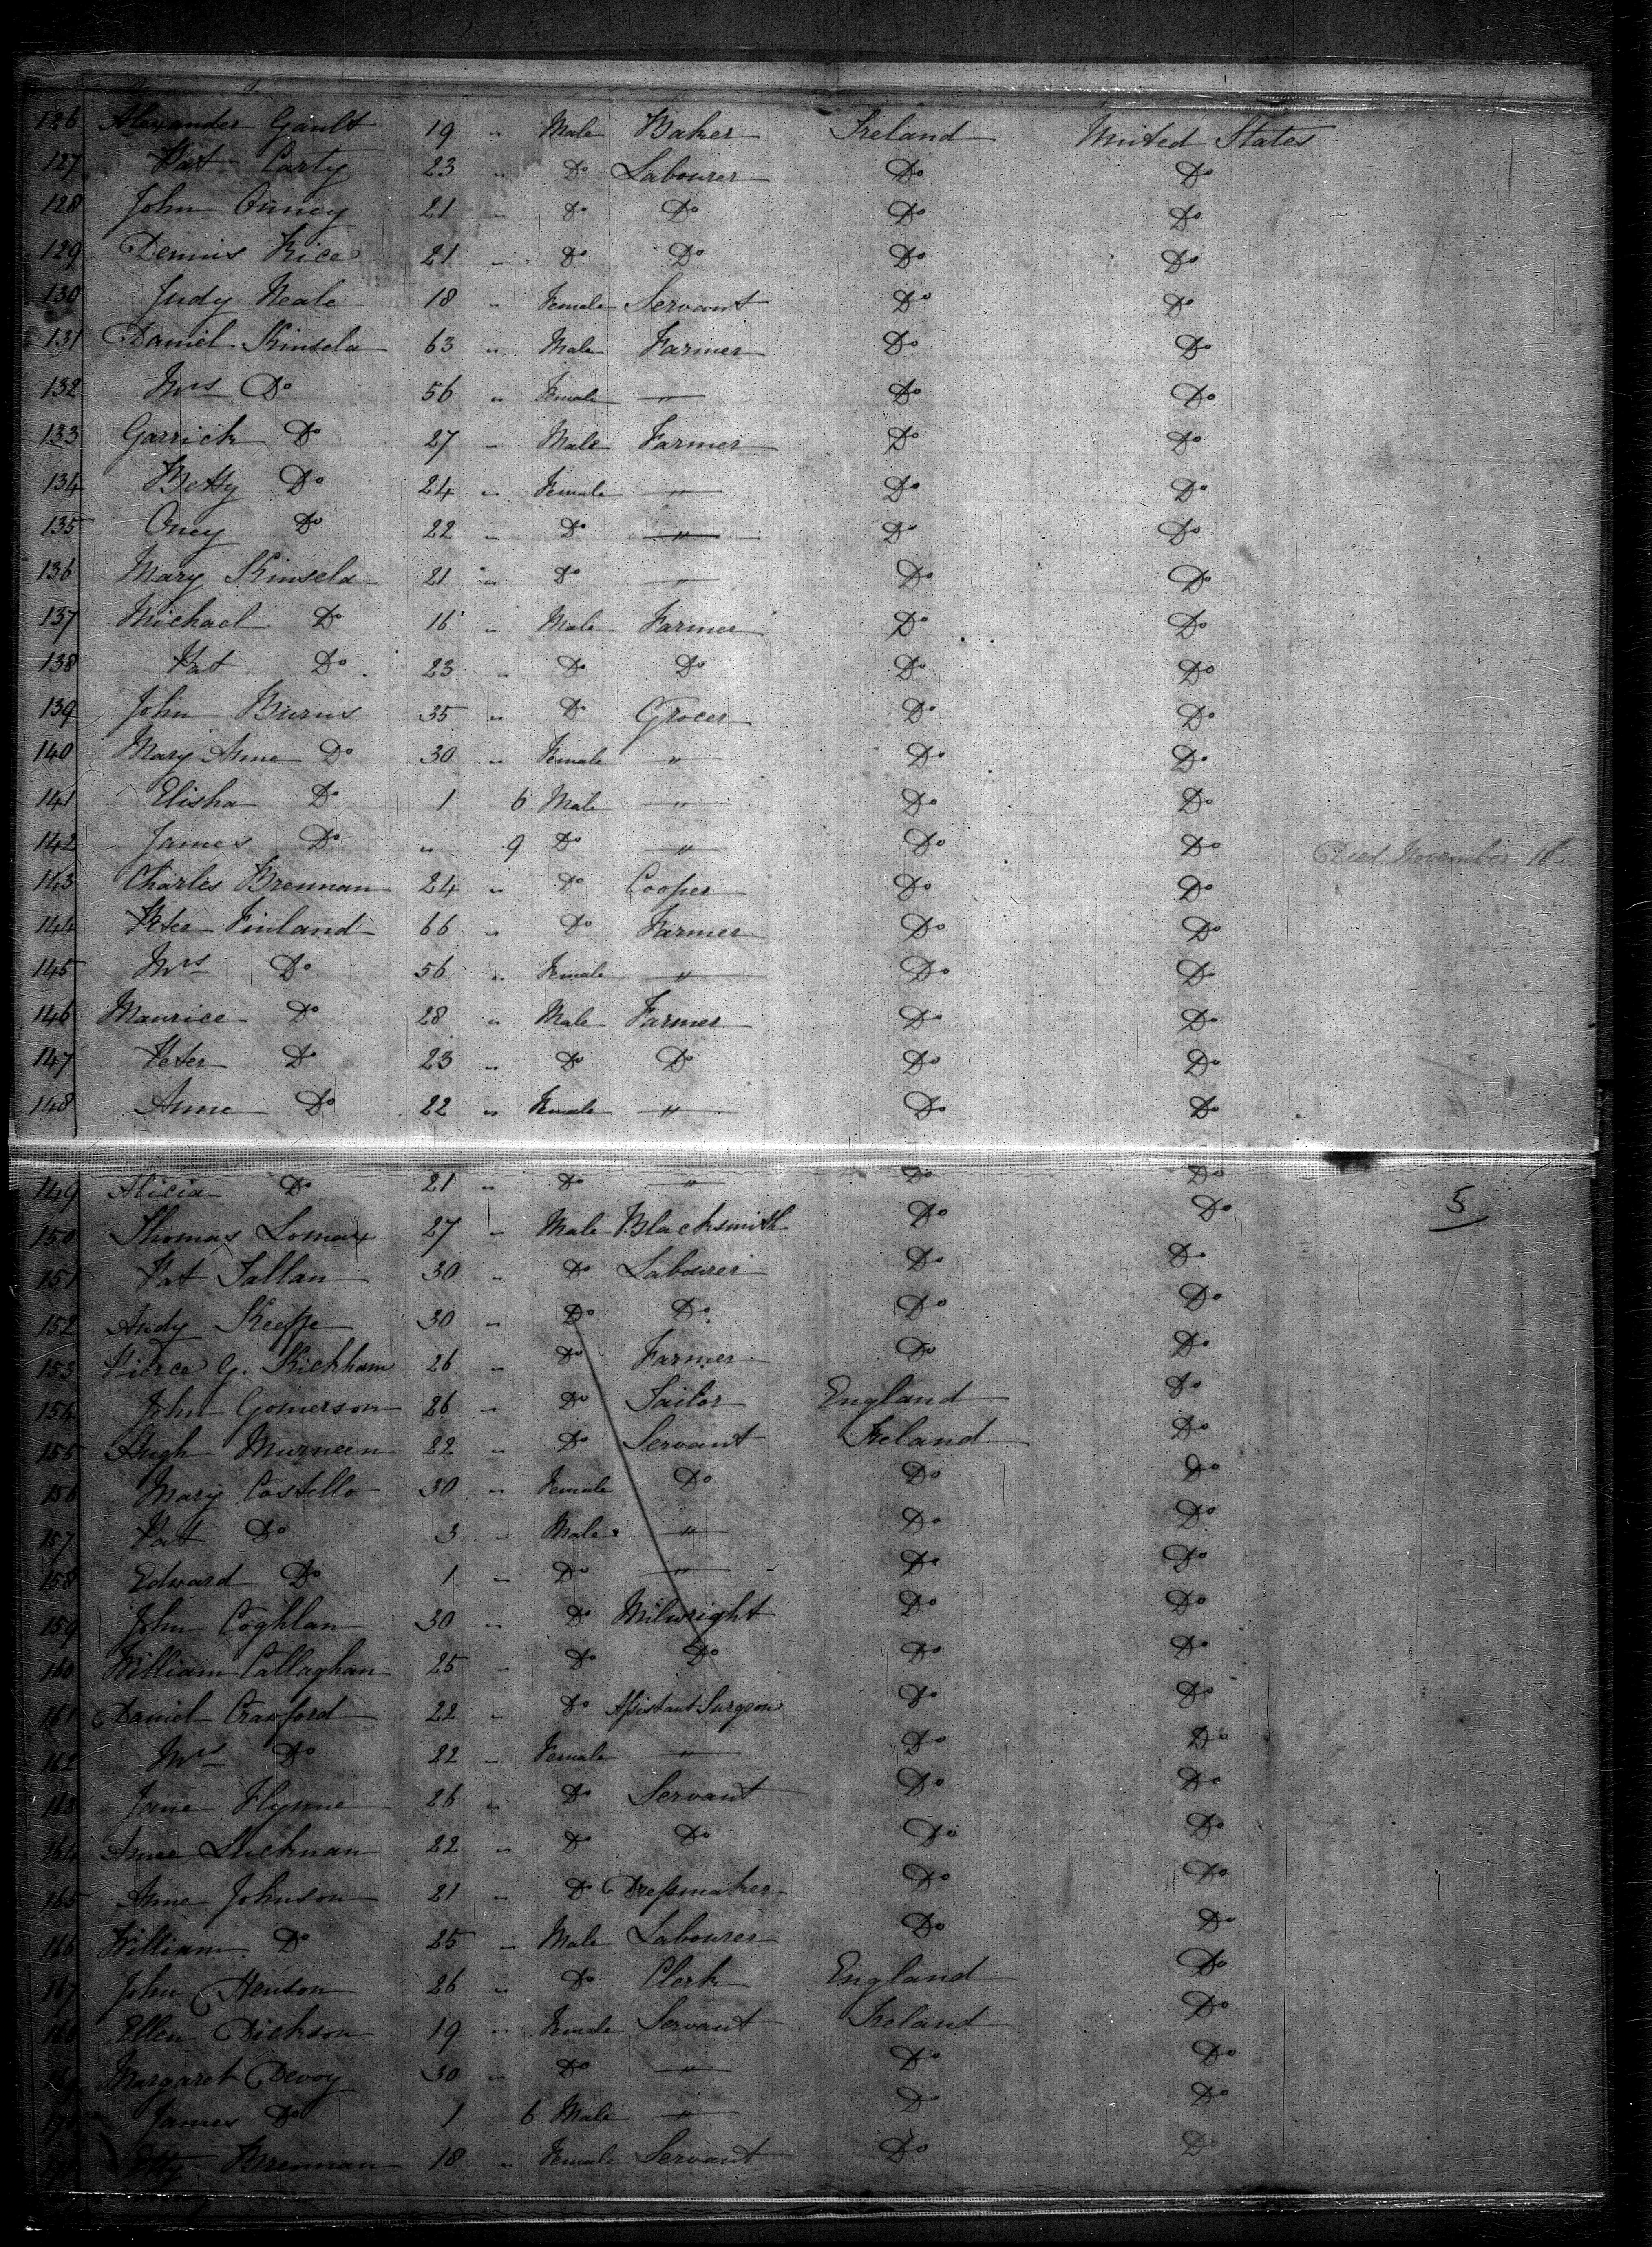 126 Alexander Gault 19 " Male Baker Ireland United States
127 Pat Carty 23 " Do Labourer Do Do
128 John 21 " Do Do Do Do
129 Dennis Rice 21 " Do Do Do Do
130 Judy Neale 18 " Female Servant Do Do
131 Daniel Kinsela 63 " Male Farmer Do Do
132 Mrs Do 56 " Female " Do Do
133 Garrick Do 27 " Male Farmer Do Do
134 Betty Do 24 " Female " Do Do
135 Oney Do 22 " Do " Do Do
136 Mary Kinsela 21 " Do " Do Do
137 Michael Do 16 " Male Farmer Do Do
138 Pat Do 23 " Do Do Do Do
139 John Burns 35 " Do Grocer Do Do
140 Mary Anne Do 30 " Female " Do Do
141 Elisha Do 1 6 Male " Do Do
142 James Do " 9 Do " Do Do Died November 16
143 Charles Brennan 24 " Do Cooper Do Do
144 Peter Finland 66 " Do Farmer Do Do
145 Mrs Do 56 " Female " Do Do
146 Maurice Do 28 " Male Farmer Do Do
147 Peter Do 23 " Do Do Do Do
148 Anne Do 22 " Female " Do Do
149 Alicia Do 21 " Do " Do Do
5
150 Thomas Lomax 27 " Male Blacksmith Do Do
151 Pat Tallan 30 " Do Labourer Do Do
152 Andy Keeffe 30 " Do Do Do Do
153 Pierce G. Kickham 26 " Do Farmer Do Do
154 John Gomerson 26 " Do Tailor England Do
155 Hugh Murneen 22 " Do Servant Ireland Do
156 Mary Costello 30 " Female Do Do Do
157 Pat Do 3 " Male " Do Do
158 Edward Do 1 " Do " Do Do
159 John Coghlan 30 " Do Milwright Do Do
160 William Callaghan 25 " Do Do Do Do
161 Daniel Crawford 22 " Do Assistant Surgeon Do Do
162 Mrs Do 22 " Female " Do Do
163 Jane Flynne 26 " Do Servant Do Do
164 Anne 22 " Do Do Do Do
165 Anne Johnson 21 " Do Dressmaker Do Do
166 William Do 25 " Male Labourer Do Do
167 John Henson 26 " Do Clerk England Do
168 Ellen Dickson 19 " Female Servant Ireland Do
Margaret Devoy 30 " Do " Do Do
James Do 1 6 Male " Do Do
Brennan 18 " Female Servant Do Do